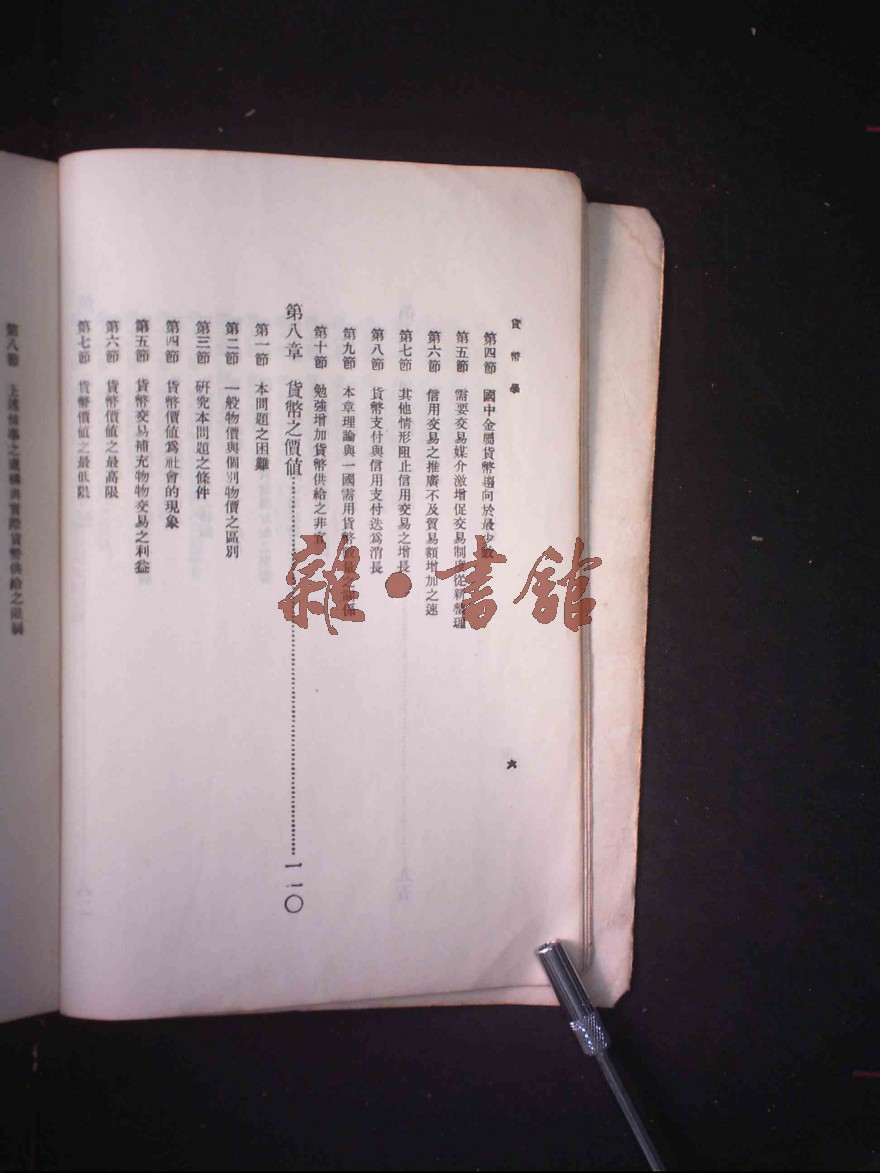 貨幣學
六
第四節 國中金屬貨幣趨向於最少數
第五節 需要交易媒介激增促交易制度從新整理
第六節 信用交易之推廣不及貿易額增加之速
第七節 其他情形阻止信用交易之增長
第八節 貨幣支付與信用支付迭爲消長
第九節 本章理論與一國需用貨幣數量之關係
第十節 勉強增加貨幣供給之非宜
第八章 貨幣之價値……一一〇
第一節 本問題之困難
第二節 一般物價與個別物價之區別
第三節 研究本問題之條件
第四節 貨幣價値爲社會的現象
第五節 貨幣交易補充物物交易之利益
第六節 貨幣價値之最高限
第七節 貨幣價値之最低限
第八節 上述候事之 與實際貨幣供給之限制
雜·書館